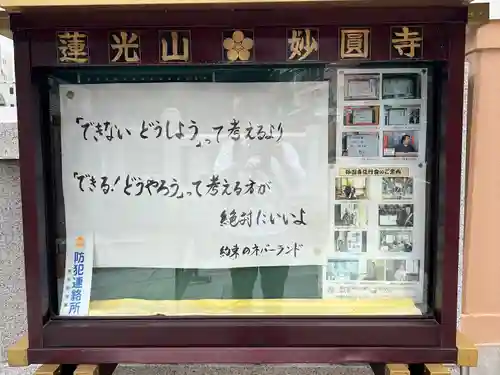 蓮光山 妙圓寺
「できない どうしよう」って考えるより
「できる!どうやろう」って考える方が
絶対にいいよ
約束のネバーランド
防犯連絡所